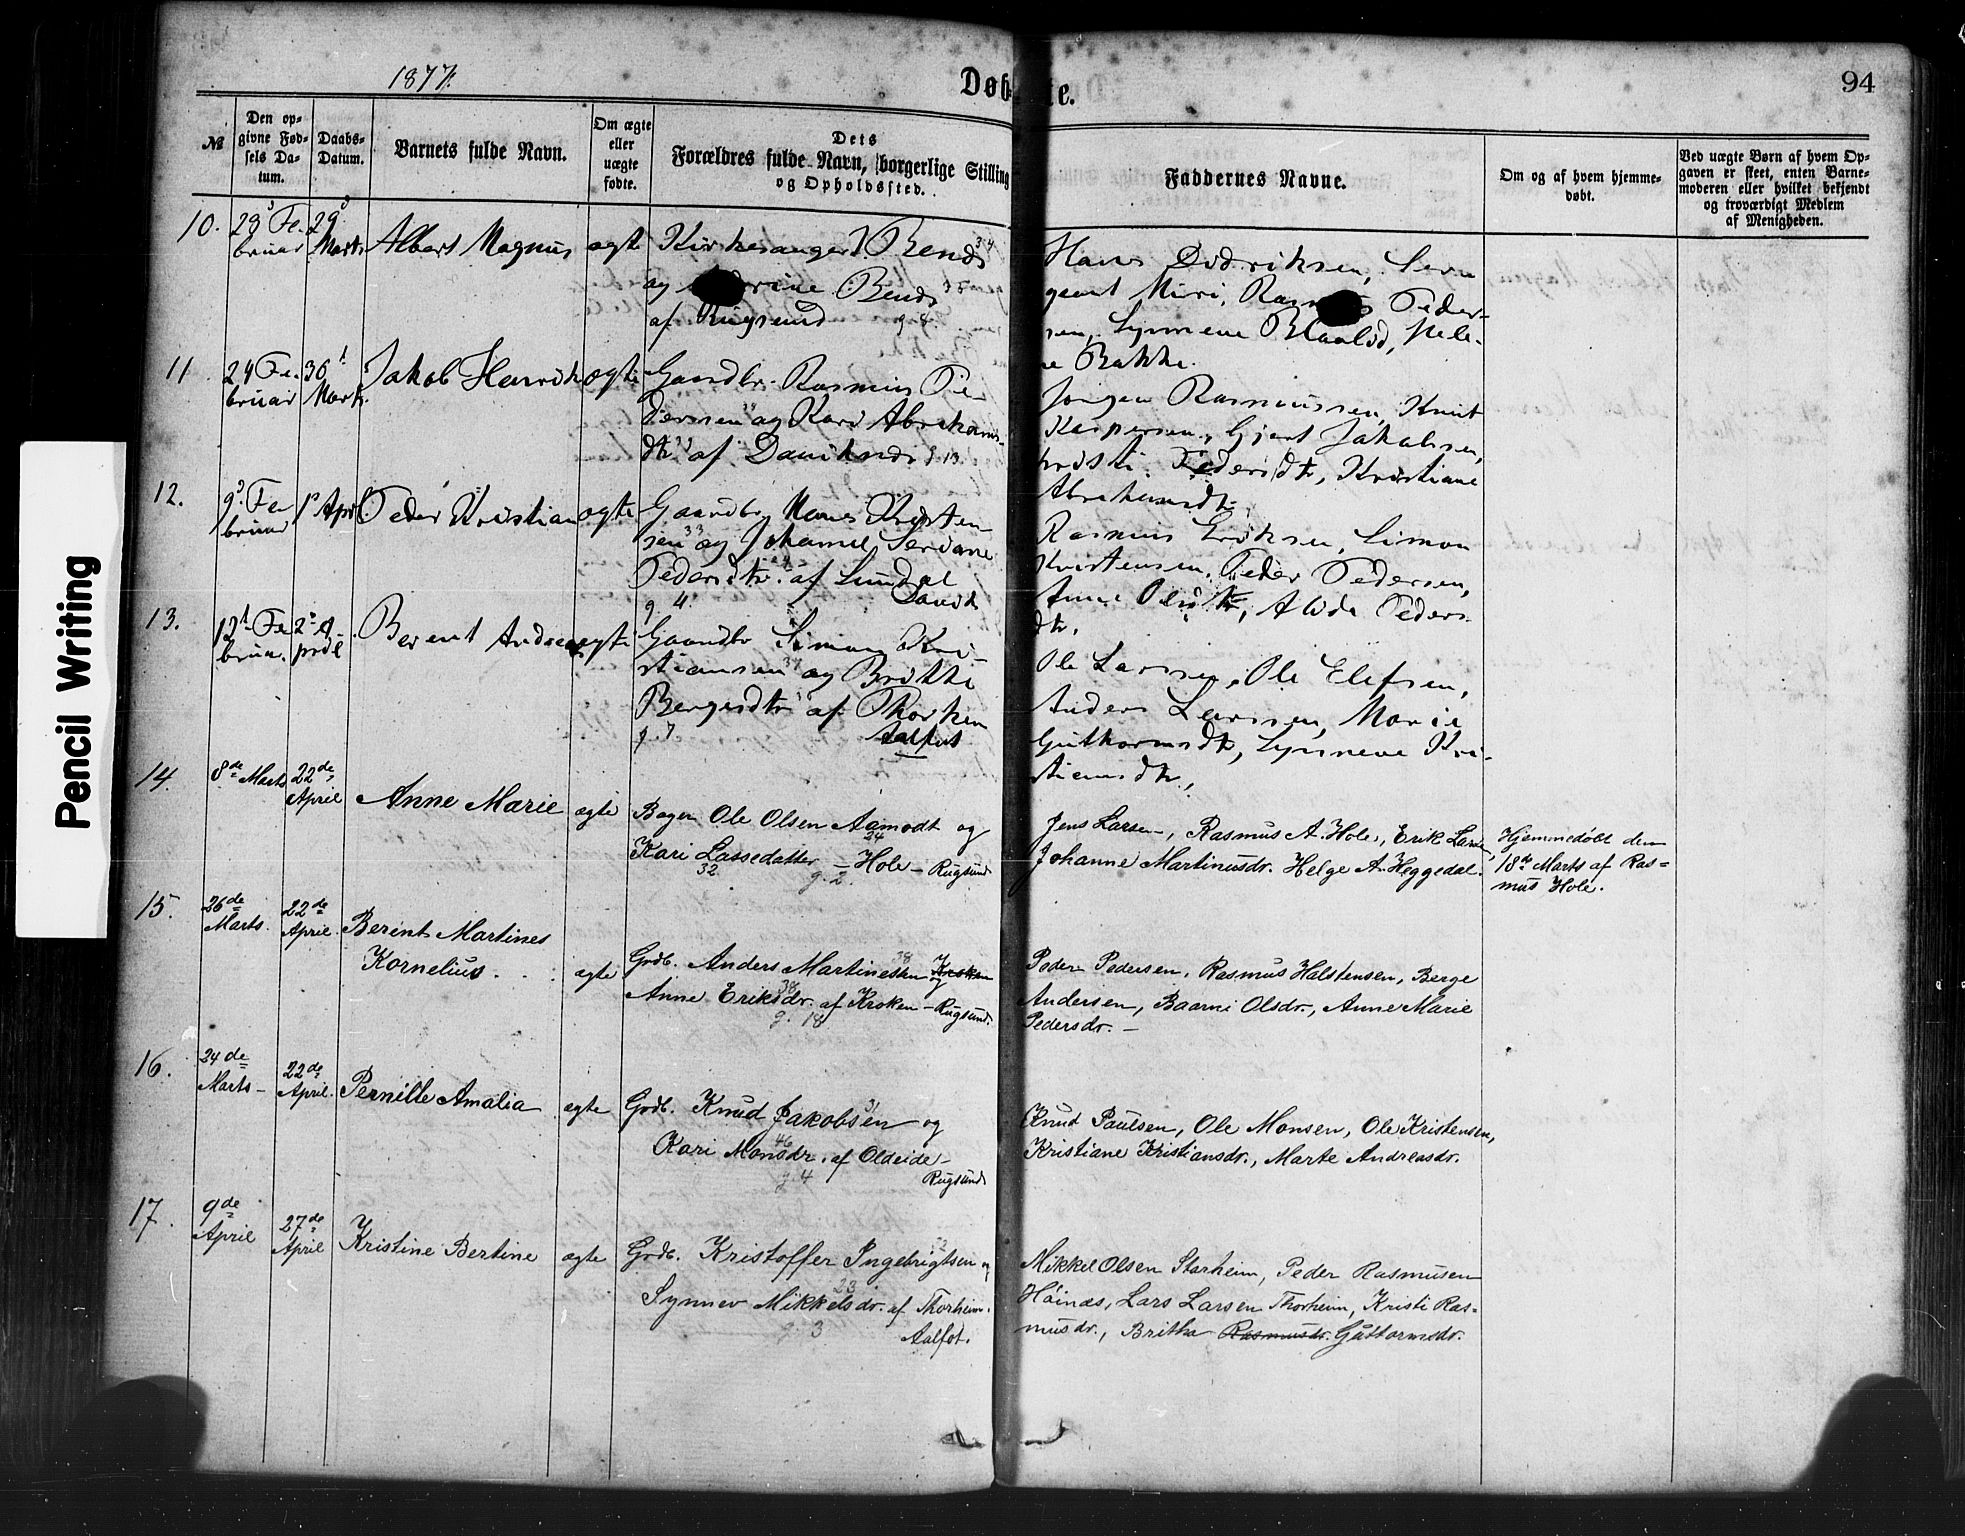 1877.
Døb
te.
94
№
Den op-
givne Fød-
sels Da-
tum.
Daabs-
Datum.
Barnets fulde Navn.
Om ægte
eller
uægte
fødte.
Dets
Forældres fulde Navn, borgerlige Stilling
og Opholdssted.
Faddernes Navne.
Om og af hvem hjemme-
døbt.
Ved uægte Børn af hvem Op-
gaven er skeet, enten Barne-
moderen eller hvilket bekjendt
og troværdigt Medlem
af Menigheden.
10.
Fe.
bruar
29
Marts
Albert Magnus
ægte
Kirkesanger Bends 34
og Bends
af Rugsund
Hans Didriksen, Ser
geant Peder-
sen, Synneve Blaalid, Hele
ne Bakke.
11
24 Fe.
bruar
30
Marts.
Jakob Henrik
ægte
Gaardbr. Rasmus Pe
dersen og Kari Abrahams-
dtr af Daviknes g. 13
Jørgen Rasmussen, Knut
Kaspersen, Gjert Jakobsen,
Kristi Pedersdtr, Kristiane
Abrahamsdtr
12.
9 Fe
bruar
1 April
Peder Kristian
ægte
Gaardbr Hans Kristen-
sen 33 og Johanne Seriane
Pedersdtr. af Lundal
g. 4. Davik
Rasmus Eriksen, Simon
Kristensen, Peder Pedersen,
Anne Olsdtr, Alida Peders
dtr.
13.
12 Fe
brua.
2 A
pril
Berent Andreas
ægte
Gaardbr Simon Kri-
stiansen og Britthe
Bergesdtr af Thorhim
g. 7 Aalfot
Ole Larsen, Ole Elefsen,
Anders Larssen, Marie
Guthormsdtr, Synneve Kri-
stiansdtr,
14.
8de Marts
22de
April
Anne Marie
ægte
Bager Ole Olsen Aamodt og
Kari Lassedatter 32 – Hole – Rugsund
g. 2.
Jens Larsen, Rasmus A. Hole, Erik Larsen,
Johanne Martinusdr. Helge A. Heggedal.
Hjemmedøbt den
18de Marts af Ras=
mus Hole.
15.
26de
Marts.
22de
April.
Berent Martines
Kornelius.
ægte
Grdb. Anders Martinessen 38 Kroken og
Anne Eriksdr. 38 af Kroken – Rugsund.
g. 18
Peder Pedersen, Rasmus Halstensen, Berge
Andersen, Baarni Olsdr., Anne Marie
Pedersdr. –
16.
24de
Marts –
22de
April.
Pernille Amalia
ægte
Grdb. Knud Jakobsen 31 og
Kari Monsdr. 46 af Oldeide –
g. 4 Rugsund
Knud Paulsen, Ole Monsen, Ole Kristensen,
Kristiane Kristiansdr., Marte Andreasdr.
17.
9de
April
27de
April
Kristine Bertine
ægte
Grdb. Kristoffer Ingebrigtsen og
Synnev Mikkelsdr. 23 af Thorheim.
g. 3 Aalfot.
Mikkel Olsen Starheim, Peder Rasmusen
Høinæs, Lars Larsen Thorheim, Kristi Ras=
musdr., Britha Rasmusdr. Guttormsdr.
Pencil Writing